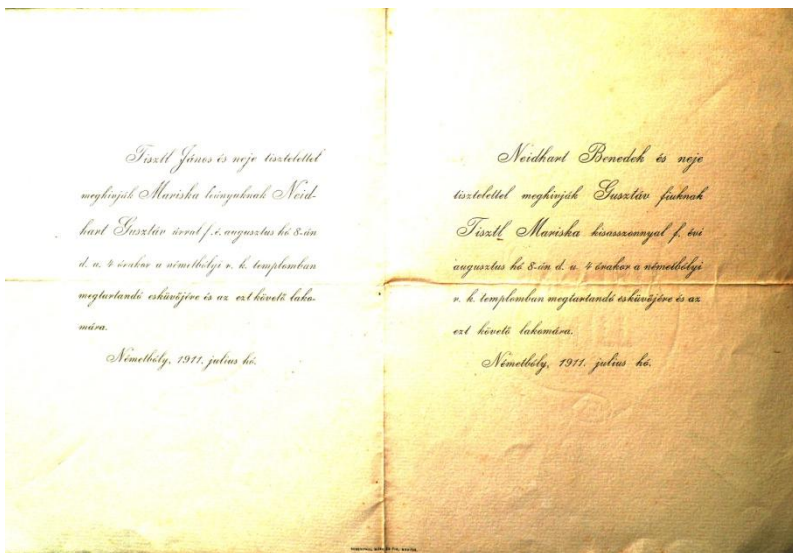 Tisztl János és neje tisztelettel
meghívják Mariska leányuknak Neid-
hart Gusztáv úrral f. é. augusztus hó 8-án
d. u. 4 órakor a németbólyi r. k. templomban
megtartandó esküvőjére és az ezt követő lako-
mára.
Németbóly, 1911. julius hó.
Neidhart Benedek és neje
tisztelettel meghívják Gusztáv fiuknak
Tisztl Mariska kisasszonnyal f. évi
augusztus hó 8-án d. u. 4 órakor a németbólyi
r. k. templomban megtartandó esküvőjére és az
ezt követő lakomára.
Németbóly, 1911. julius hó.